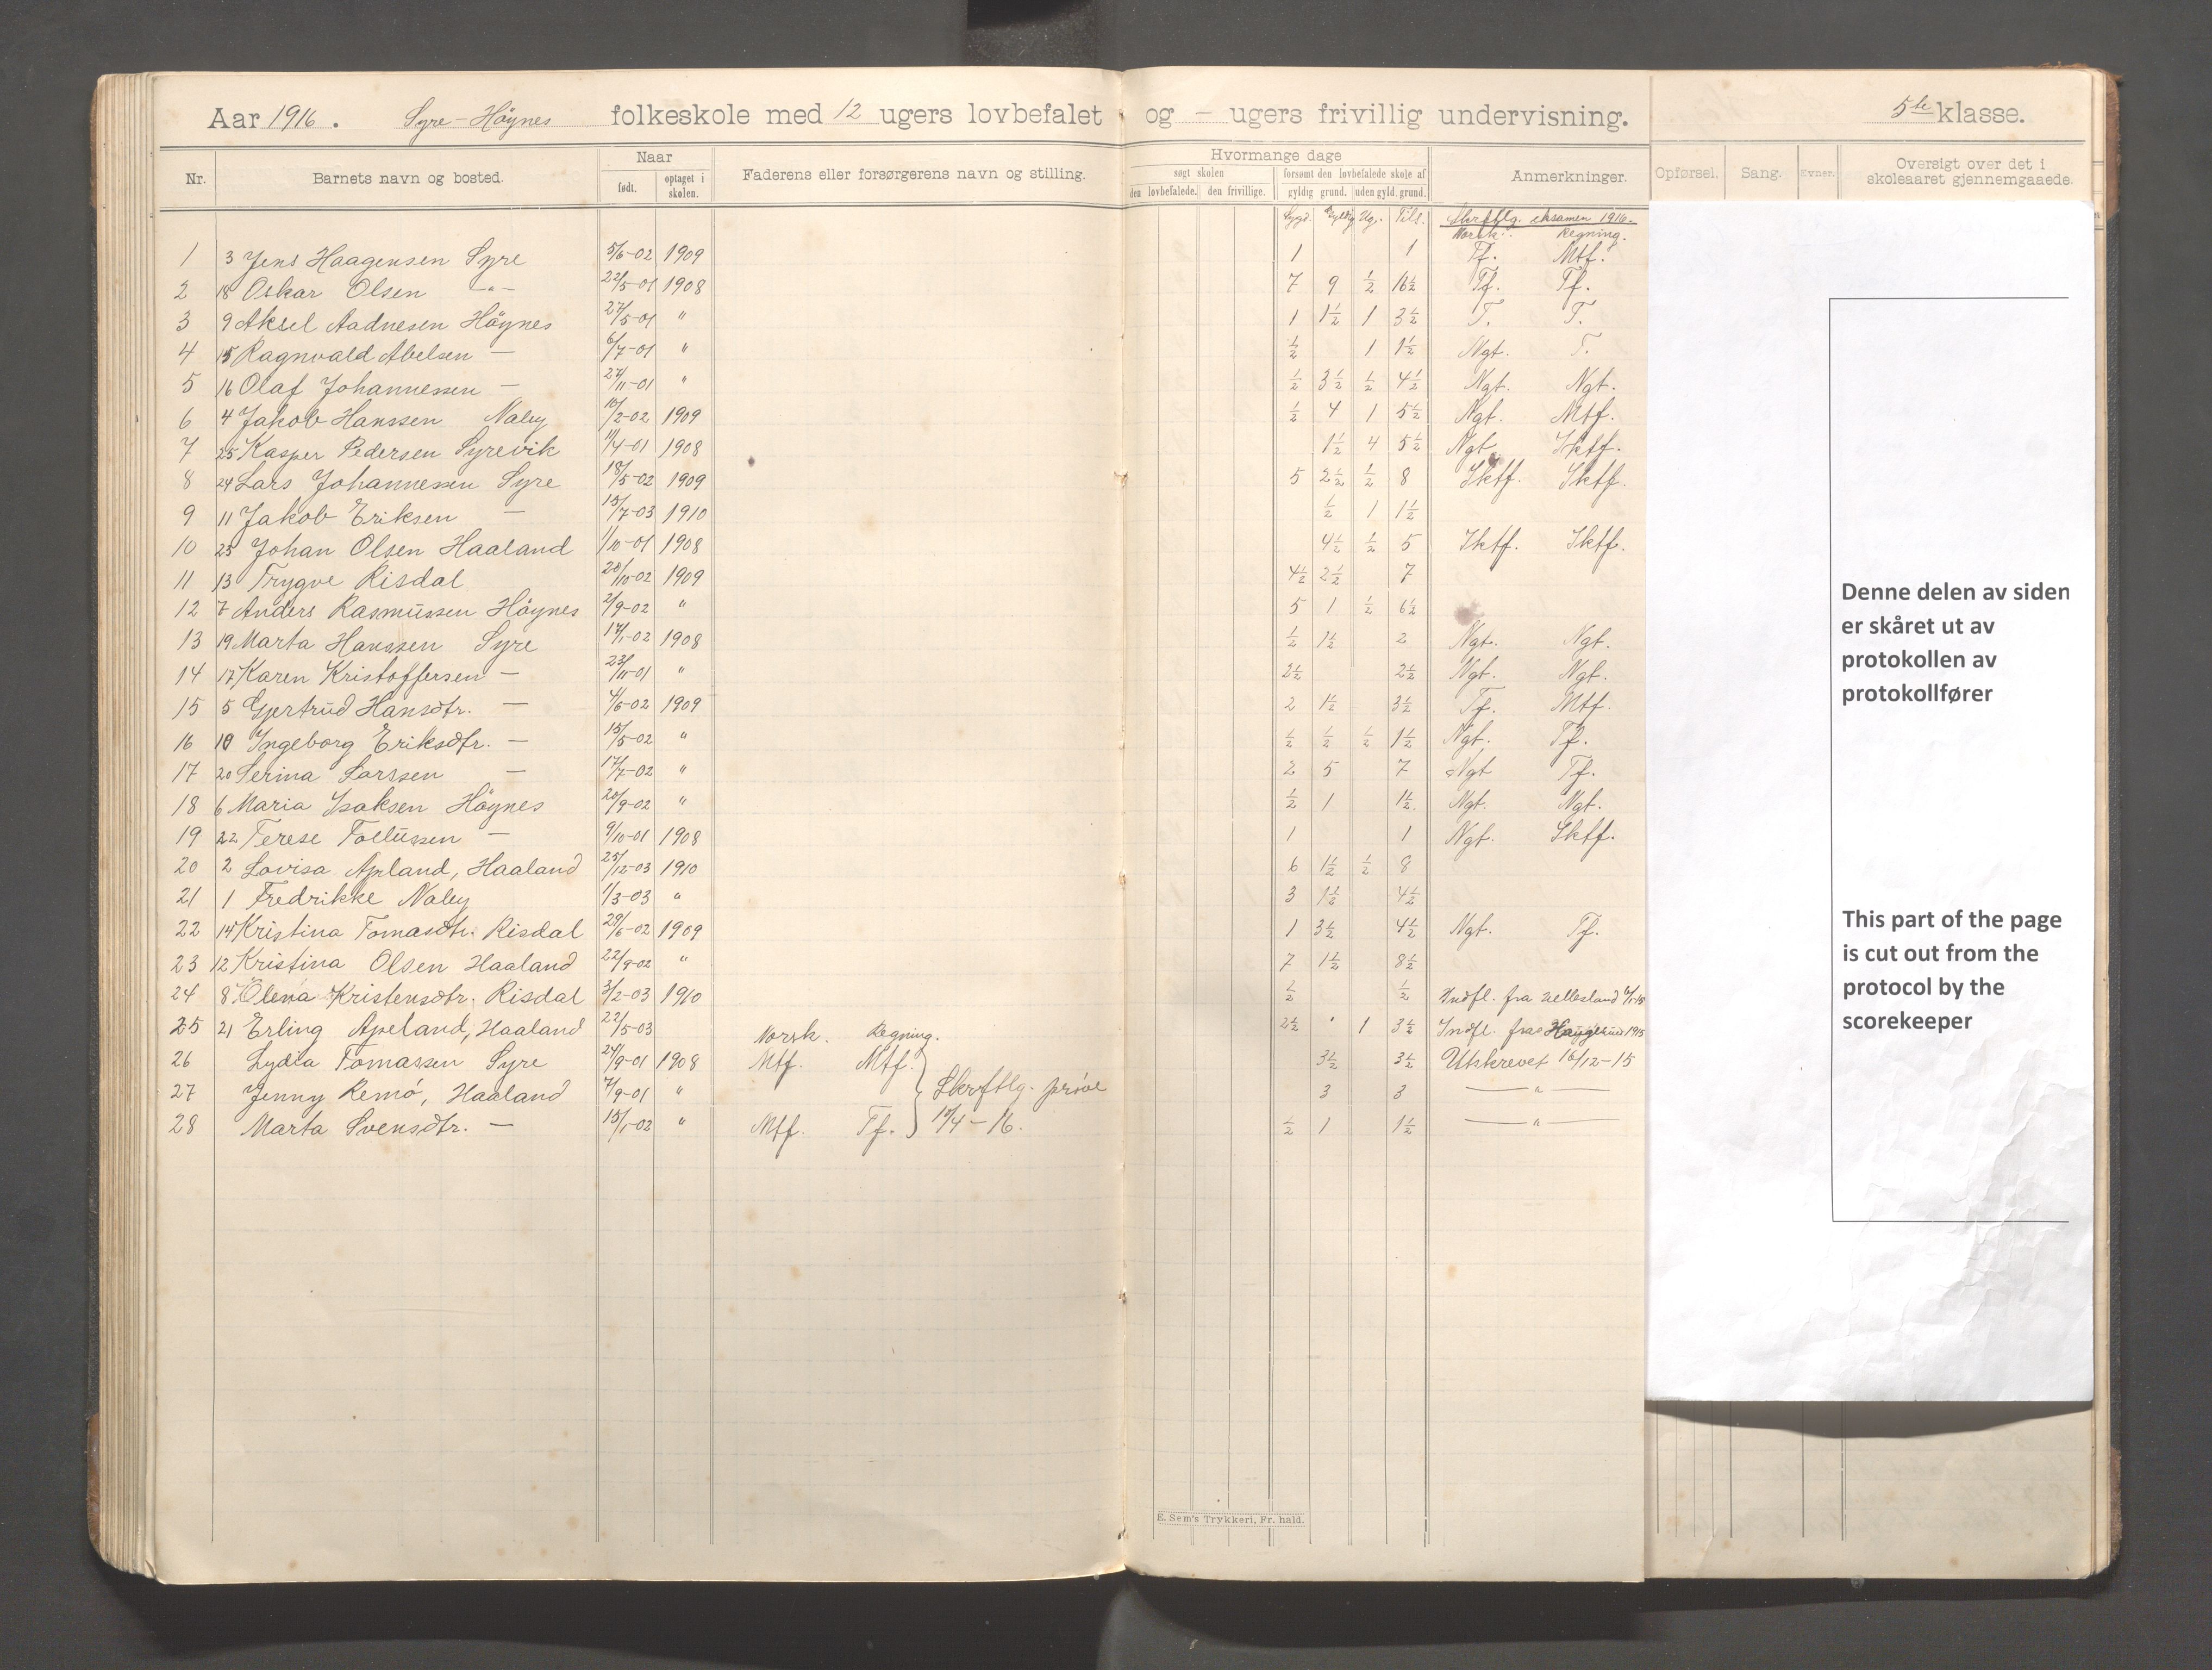 Aar 1916. Syre-Höynes folkeskole med 12 ugers lovbefalet og — ugers frivillig undervisning. 5te klasse.
Nr. Barnets navn og bosted. Naar født. optaget i skolen. Faderens eller forsørgerens navn og stilling. Hvormange dage søgt skolen den lovbefalede. den frivillige. forsømt den lovbefalede skole af gyldig grund. uden gyld. grund. Anmerkninger. Opførsel. Sang. Evner. Oversigt over det i skoleaaret gjennemgaaede.
Sygd. Gyldig Ug. Tils. Skrftlg. eksamen 1916.
Norsk. Regning.
1 3 Jens Haagensen Syre 5/6-02 1909 1 1 Tf. Mtf.
2 18 Oskar Olsen -"- 22/5-01 1908 7 9 ½ 16½ Tf. Tf.
3 9 Aksel Aadnesen Höynes 27/5-01 " 1 1½ 1 3½ T. T.
4 15 Ragnvald Abelsen — 6/7-01 " ½ 1 1½ Ngt. T.
5 16 Olaf Johannessen — 27/11-01 " ½ 3½ ½ 4½ Ngt. Ngt.
6 4 Jakob Hanssen Naley 16/2-02 1909 ½ 4 1 5½ Ngt. Mtf.
7 25 Kasper Pedersen Syrevik 11/4-01 1908 1½ 4 5½ Ngt. Iktf.
8 24 Lars Johannessen Syre 18/5-02 1909 5 2½ ½ 8 Iktf. Iktf.
9 11 Jakob Eriksen — 15/7-03 1910 ½ 1 1½
10 23 Johan Olsen Haaland 1/10-01 1908 4½ ½ 5 Iktf. Iktf.
11 13 Trygve Risdal 20/10-02 1909 4½ 2½ 7
12 7 Anders Rasmussen Höynes 2/9-02 " 5 1 ½ 6½
13 19 Marta Hanssen Syre 14/1-02 1908 ½ 1½ 2 Ngt. Ngt.
14 17 Karen Kristoffersen — 23/11-01 " 2½ 2½ Ngt. Ngt.
15 5 Gjertrud Hansdtr. — 4/6-02 1909 2 1½ 3½ Tf. Mtf.
16 10 Ingeborg Eriksdtr. — 15/5-02 " ½ ½ ½ 1½ Ngt. Tf.
17 20 Serina Larssen — 17/7-02 " 2 5 7 Ngt Tf.
18 6 Maria Isaksen Höynes 20/9-02 " ½ 1 1½ Ngt. Ngt.
19 22 Terese Tollussen — 9/10-01 1908 1 1 Ngt. Iktf.
20 2 Lovisa Apland, Haaland 25/12-03 1910 6 1½ ½ 8
21 1 Fredrikke Naley 1/3-03 " 3 1½ 4½
22 14 Kristina Tomasdtr. Risdal 29/6-02 1909 1 3½ 4½ Ngt. Tf.
23 12 Kristina Olsen Haaland 22/9-02 " 7 1½ 8½
24 8 Olena Kristensdtr. Risdal 3/2-03 1910 ½ ½ Indfl. fra
25 21 Erling Apeland, Haaland 22/5-03 Norsk. Regning. 2½ 1 3½ Indfl. fra Haugesund 1915
26 Lydia Tomassen Syre 24/9-01 1908 Mtf. Mtf. 3½ 3½ Utskrevet 16/12-15
27 Jenny Remö, Haaland 7/9-01 " Skrftlg. prøve 3 3 — " —
28 Marta Svensdtr. — 15/1-02 " Mtf. Tf. 10/4-16. ½ 1 1½ — " —
E. Sem's Trykkeri, Fr. hald.
Denne delen av siden
er skåret ut av
protokollen av
protokollfører
This part of the page
is cut out from the
protocol by the
scorekeeper